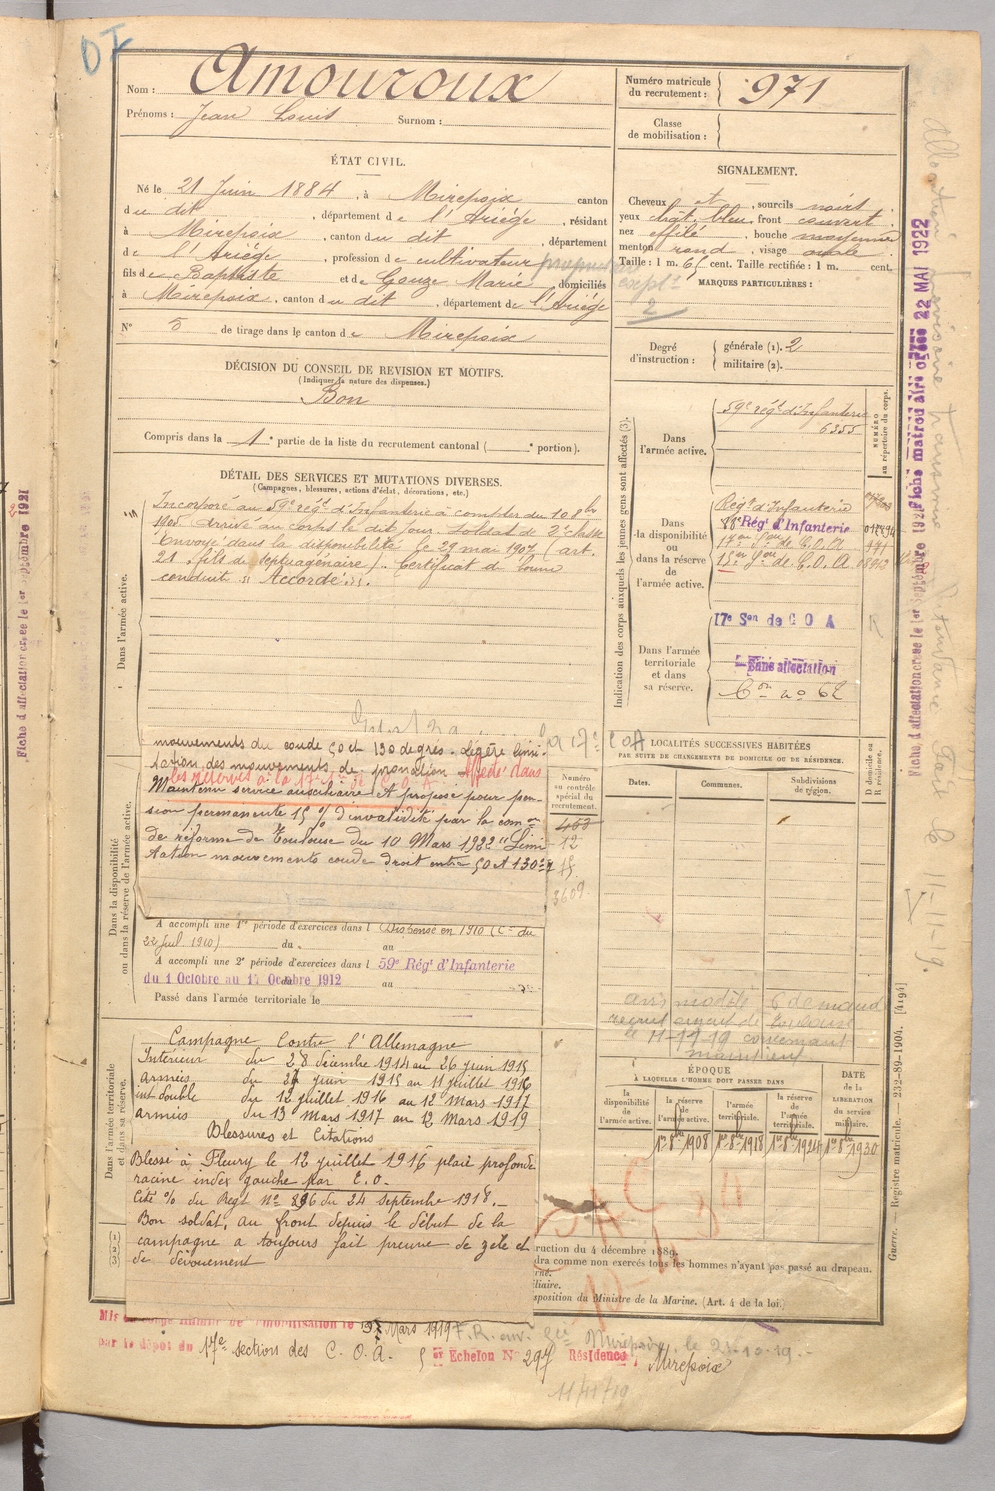 DI
Nom : Amouroux
Prénoms : Jean Louis Surnom :
Numéro matricule du recrutement : 971
Classe de mobilisation :
ÉTAT CIVIL.
Né le 21 Juin 1884, à Mirepoix canton
du dit, département de l'Ariége, résidant
à Mirepoix, canton du dit, département
de l'Ariége, profession de cultivateur
fils de Baptiste et de Gouze Marie domiciliés
à Mirepoix, canton du dit, département de l'Ariége
N° 5 de tirage dans le canton de Mirepoix
SIGNALEMENT.
Cheveux et, sourcils noirs.
yeux chât. bleu front couvert
nez effilé, bouche moyenne
menton rond, visage ovale.
Taille : 1 m. 65 cent. Taille rectifiée : 1 m. cent.
MARQUES PARTICULIÈRES :
2
Degré d'instruction : générale (1). 2
militaire (2).
DÉCISION DU CONSEIL DE REVISION ET MOTIFS.
(Indiquer la nature des dispenses.)
Bon
Compris dans la 1e partie de la liste du recrutement cantonal ( e portion).
DÉTAIL DES SERVICES ET MUTATIONS DIVERSES.
(Campagnes, blessures, actions d'éclat, décorations, etc.)
Dans l'armée active.
Incorporé au 59e régt d'Infanterie à compter du 10 8bre
1905 arrivé au corps le dit jour. Soldat de 2e classe
Envoyé dans la disponibilité le 29 mai 1907 (art.
21, fils de septuagénaire). Certificat de bonne
conduite "Accordé".
Indication des corps auxquels les jeunes gens sont affectés (3).
NUMÉRO au répertoire du corps.
Dans l'armée active.
59e régt d'Infanterie
6355
Dans la disponibilité ou dans la réserve de l'armée active.
Régt d'Infanterie
Régt d'Infanterie
17e Son de C.O.A
Son de C.O.A.
Dans l'armée territoriale et dans sa réserve.
17e Son de C O A
R
Sans affectation
Con no 62
Dans la disponibilité ou dans la réserve de l'armée active.
mouvements du coude 50 et 130 degrés. Légère limi-
tation des mouvements de pronation. Affecté dans
les réserves à la 17e Son de C.O.A
Maintenu service auxiliaire. Et proposé pour pen-
sion permanente 15 % d'invalidité par la comon
de réforme de Toulouse du 10 Mars 1922 "Limi-
tation mouvements coude droit entre 50 et 130°"
Numéro au contrôle spécial du recrutement.
463
12
15
3609
LOCALITÉS SUCCESSIVES HABITÉES
PAR SUITE DE CHANGEMENTS DE DOMICILE OU DE RÉSIDENCE.
Dates. Communes. Subdivisions de région.
D domicile ou R résidence.
A accompli une 1re période d'exercices dans l Dispensé en 1910 (Ce du
22 Juil. 1910) du au
A accompli une 2e période d'exercices dans l 59e Régt d'Infanterie
du 1 Octobre au 17 Octobre 1912 au
Passé dans l'armée territoriale le
avis modèle C demandé
recrutement de Toulouse
le 11-11-19 concernant
maintien
Dans l'armée territoriale et dans sa réserve.
Campagne Contre l'Allemagne
Intérieur du 28 décembre 1914 au 26 juin 1915
Armées du 27 juin 1915 au 11 juillet 1916
int double du 12 juillet 1916 au 12 Mars 1917
armées du 13 Mars 1917 au 12 Mars 1919
Blessures et Citations
Blessé à Fleury le 12 juillet 1916 plaie profonde
racine index gauche par E.O.
Cité % du Regt No 896 du 24 septembre 1918.
Bon soldat, au front depuis le début de la
campagne a toujours fait preuve de zèle et
de dévouement
ÉPOQUE
À LAQUELLE L'HOMME DOIT PASSER DANS
la disponibilité de l'armée active.
la réserve de l'armée active.
l'armée territoriale.
la réserve de l'armée territoriale.
DATE de la LIBÉRATION du service militaire.
1er 8bre 1908
1er 8bre 1918
1er 8bre 1924
1er 8bre 1930
ruction du 4 décembre 1889.
dra comme non exercés tous les hommes n'ayant pas passé au drapeau.
rné.
iliaire.
sposition du Ministre de la Marine. (Art. 4 de la loi.)
Mis en congé illimité de démobilisation le 13 Mars 1919 F.R. Mirepoix, le 21-10-19.
par le dépôt du 17e sections des C.O.A. 5 Echelon No 297 Résidence, Mirepoix
11/11/19
Guerre. — Registre matricule. — 232-89-1904. [4194]
Fiche matricule créée 22 MAI 1922
Fiche d'affectation créée le 1er septembre 1921
Fiche d'affectation créée le 1er septembre 1921
11-11-19.